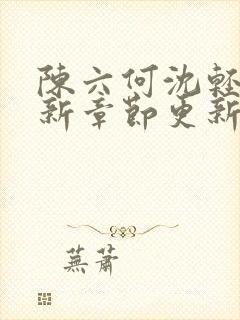 陳六何沈輕
新章節更新
蕪蕭